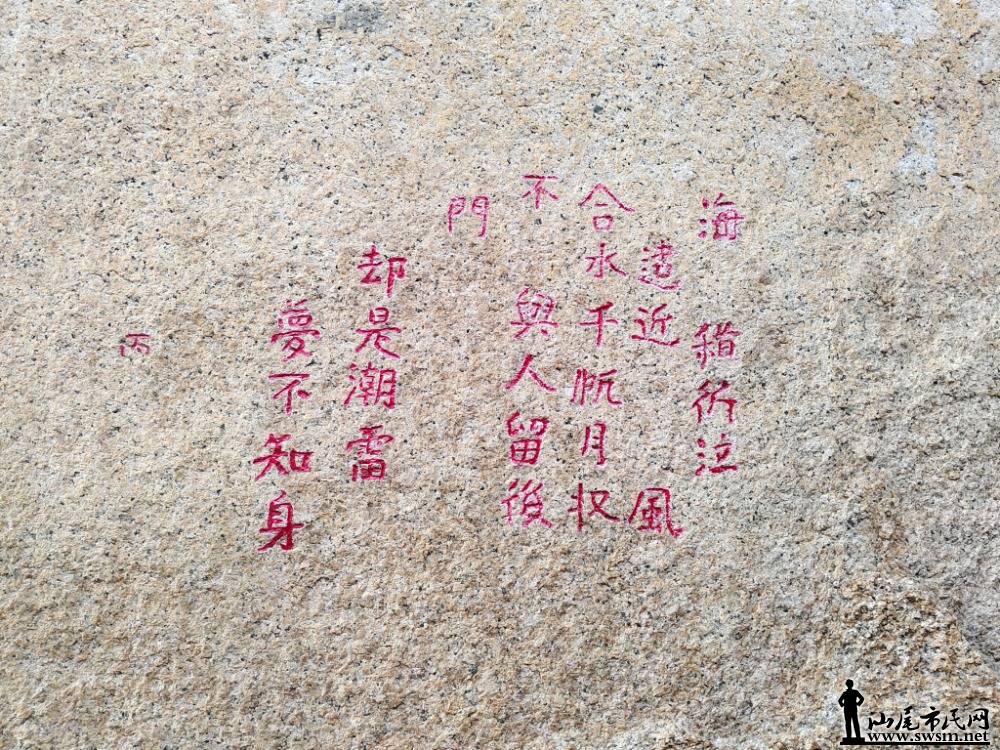 海 衍
遠近 風
合水千帆月
不 與人留後
門
却是潮雷
夢不知身
丙
汕尾市民网
www.swsm.net